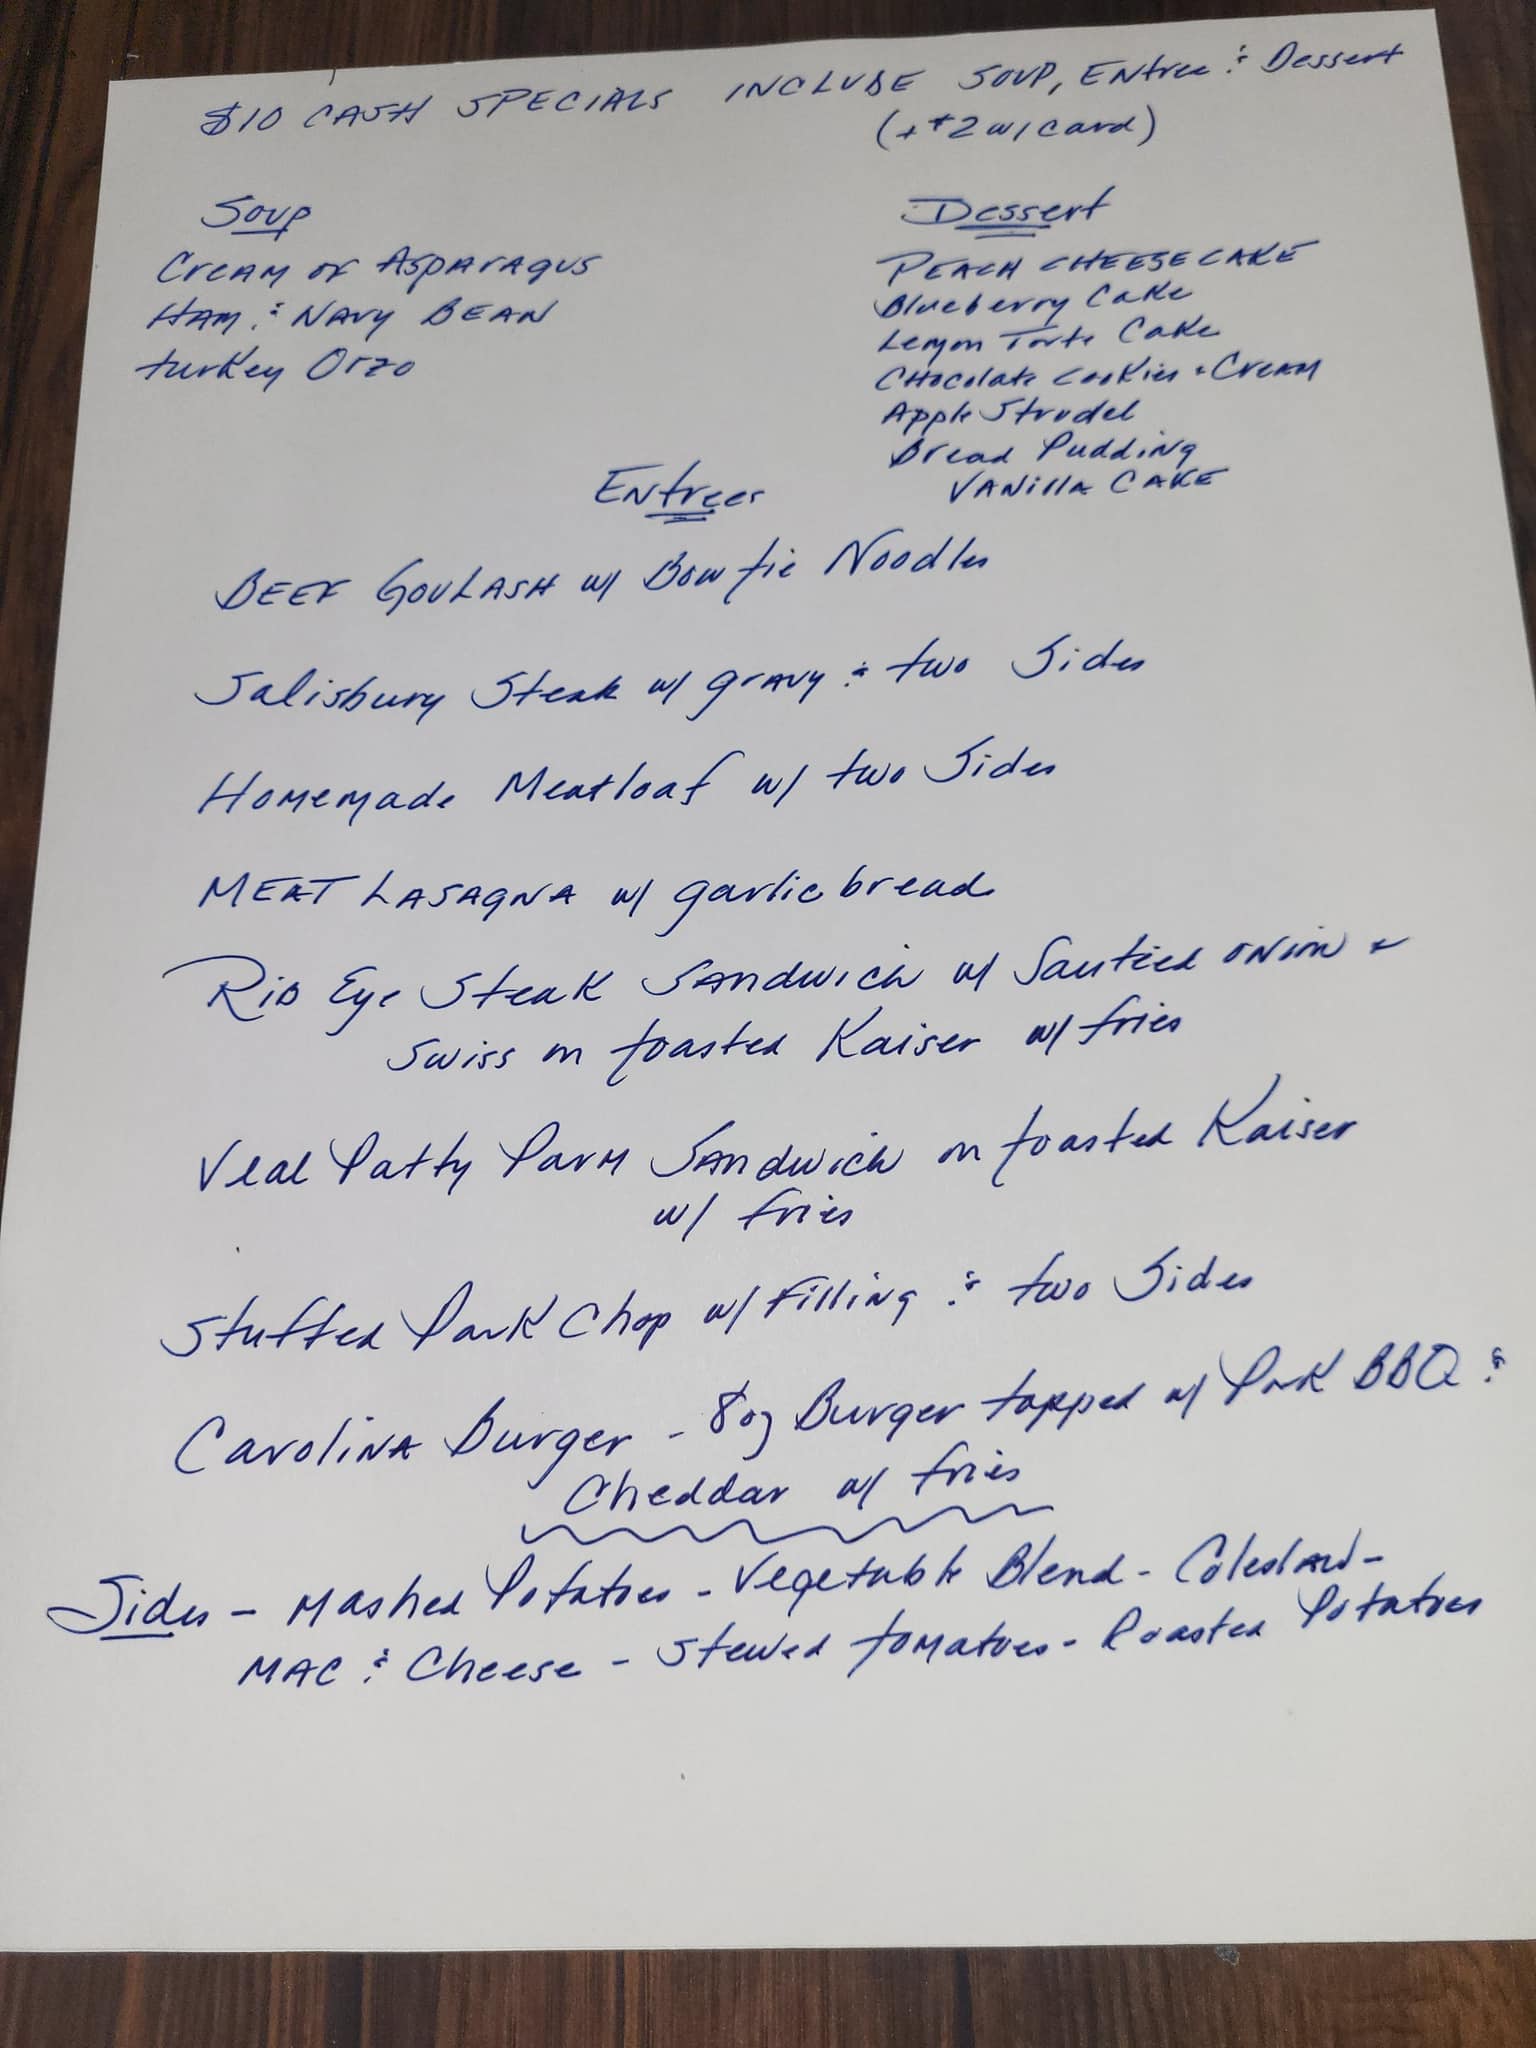 $10 CASH SPECIALS INCLUDE SOUP, Entree & Dessert
(+$2 w/ card)
Soup
Cream of Asparagus
Ham & Navy Bean
turkey Orzo
Dessert
PEACH CHEESECAKE
Blueberry Cake
Lemon Torte Cake
Chocolate Cookies & Cream
Apple Strudel
Bread Pudding
Vanilla Cake
Entrees
BEEF GOULASH w/ Bowtie Noodles
Salisbury Steak w/ gravy & two Sides
Homemade Meatloaf w/ two Sides
MEAT LASAGNA w/ garlic bread
Rib Eye Steak Sandwich w/ Sautéed onion &
Swiss on toasted Kaiser w/ fries
Veal Patty Parm Sandwich on toasted Kaiser
w/ fries
Stuffed Pork Chop w/ Filling & two Sides
Carolina Burger - 8oz Burger topped w/ Pork BBQ &
Cheddar w/ fries
Sides - Mashed Potatoes - Vegetable Blend - Coleslaw -
MAC & Cheese - Stewed tomatoes - Roasted Potatoes